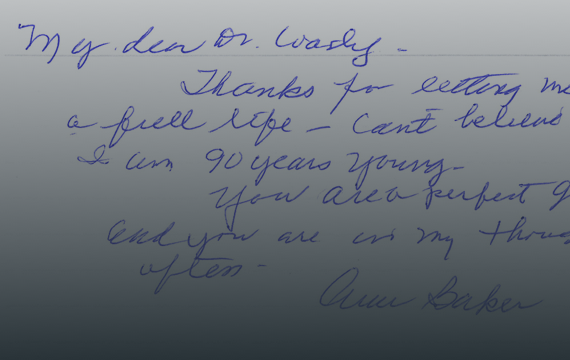 My dear Dr. Wasly -
Thanks for letting me
a full life - Can't believe
I am 90 years young -
You are a perfect
and you are in my
often -
Ann Baker